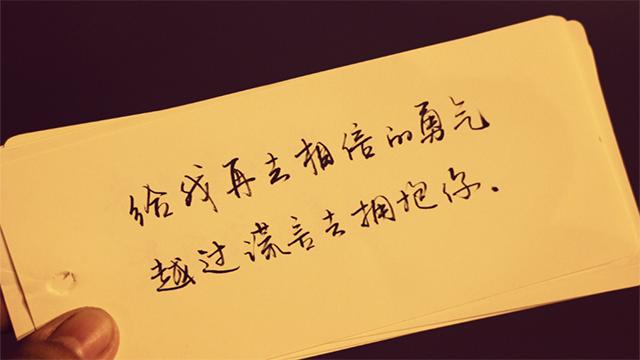 给我再去相信的勇气
越过谎言去拥抱你.